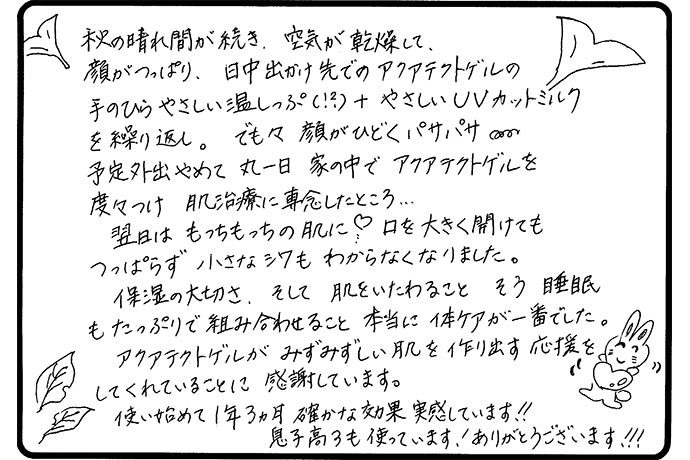 秋の晴れ間が続き、空気が乾燥して、
顔がつっぱり、日中出かけ先でのアクアテクトゲルの
手のひらやさしい温しっぷ(!?)+やさしいUVカットミルク
を繰り返し。でも々顔がひどくパサパサ
予定外出やめて丸一日家の中でアクアテクトゲルを
度々つけ 肌治療に専念したところ…
翌日はもっちもっちの肌に♡口を大きく開けても
つっぱらず小さなシワもわからなくなりました。
保湿の大切さ、そして肌をいたわること そう 睡眠
もたっぷりで組み合わせること本当に体ケアが一番でした。
アクアテクトゲルがみずみずしい肌を作り出す応援を
してくれていることに感謝しています。
使い始めて1年3ヵ月確かな効果実感しています!!
息子高3も使っています!ありがとうございます!!!